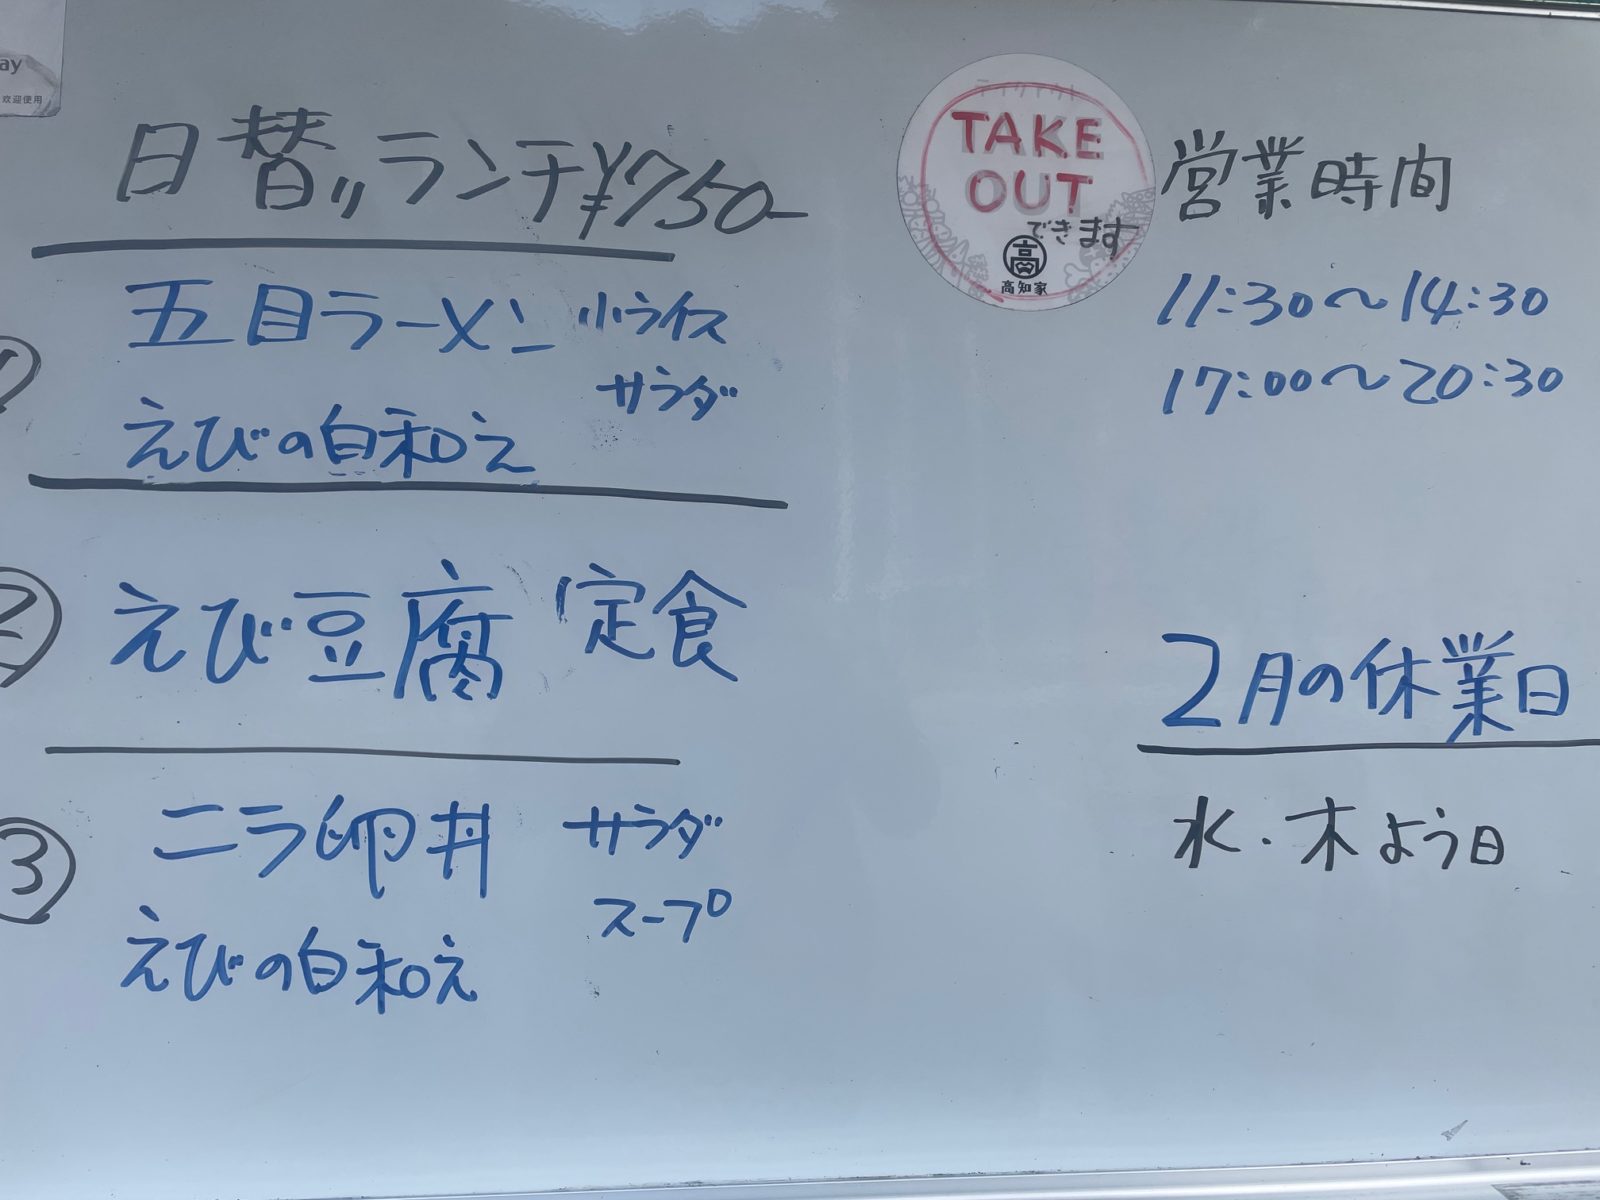 ay
欢迎使用
日替りランチ¥750-
①
五目ラーメン 小ライス
サラダ
えびの白和え
②
えび豆腐 定食
③
ニラ卵丼 サラダ
スープ
えびの白和え
テイクアウト
TAKE
OUT
できます
高
高知家
営業時間
11:30〜14:30
17:00〜20:30
2月の休業日
水・木よう日